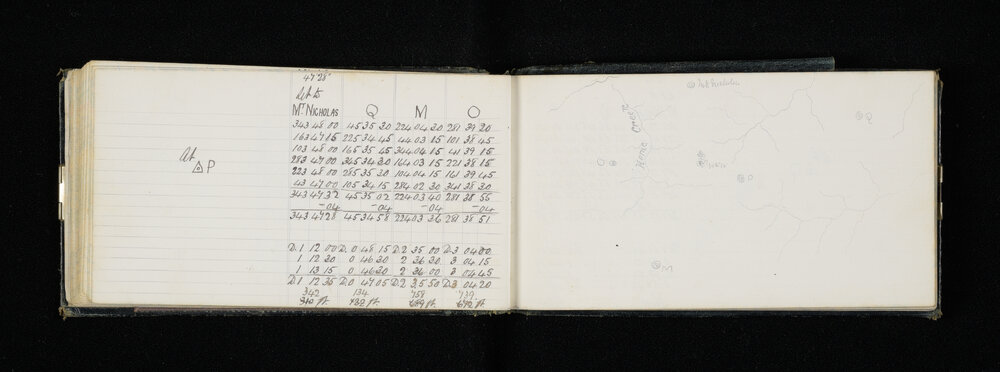 47 28
At to
At
△ P
Mt NICHOLAS Q M O
343 48 00 45 35 30 224 04 30 281 39 20
163 47 15 225 34 45 44 03 15 101 38 45
103 48 00 165 35 45 344 04 15 41 39 15
283 47 00 345 34 30 164 03 15 221 38 15
223 48 00 285 35 30 104 04 15 161 39 45
43 47 00 105 34 15 284 02 30 341 38 30
343 47 32 45 35 02 224 03 40 281 38 55
-04 -04 -04 -04
343 47 28 45 34 58 224 03 36 281 38 51
D. 1 12 00 D. 0 48 15 D. 2 35 00 D. 3 04 00
1 12 30 0 46 30 2 36 30 3 04 15
1 13 15 0 46 30 2 36 00 3 04 45
D. 1 12 35 D. 0 47 05 D. 2 35 50 D. 3 04 20
342 134 758 739
ft. ft. ft. ft.
Mt Nicholas
Q
Creek
O
P
M